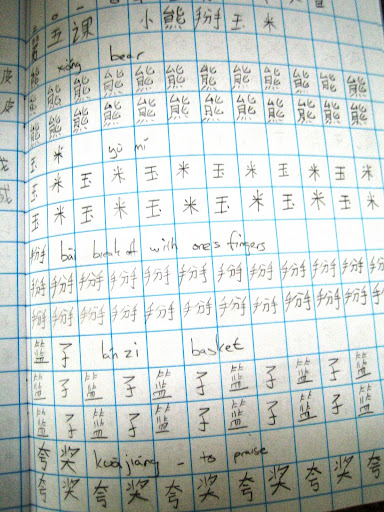 第五课 小熊掰玉米
熊 xióng bear
熊 熊 熊 熊 熊 熊 熊 熊 熊 熊 熊
熊 熊 熊 熊 熊 熊 熊 熊 熊 熊 熊
玉 米 yù mǐ
玉 米 玉 米 玉 米 玉 米 玉 米 玉 米
玉 米 玉 米 玉 米 玉 米 玉 米 玉 米
掰 bāi break off with one's fingers
掰 掰 掰 掰 掰 掰 掰 掰 掰 掰 掰 掰
掰 掰 掰 掰 掰 掰 掰 掰 掰 掰 掰 掰
篮 子 lán zi basket
篮 子 篮 子 篮 子 篮 子 篮 子 篮
篮 子 篮 子 篮 子 篮 子 篮 子 篮
夸 奖 kuājiǎng - to praise
夸 奖 夸 奖 夸 奖 夸 奖 夸 奖